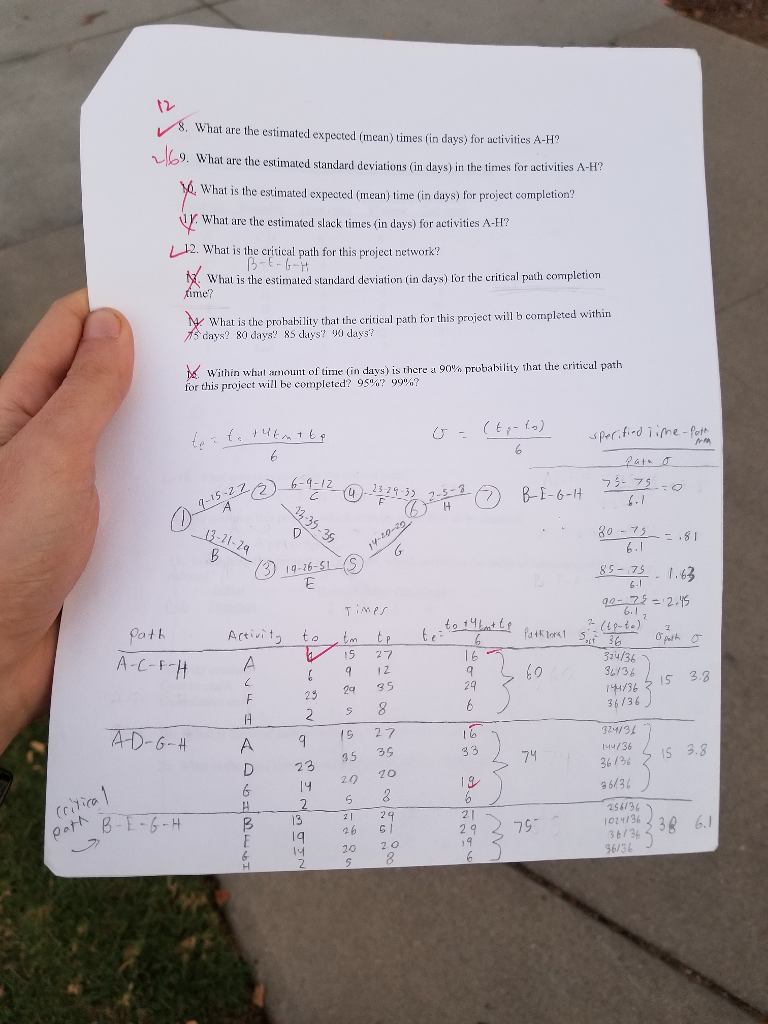 12
8. What are the estimated expected (mean) times (in days) for activities A-H?
2/6 9. What are the estimated standard deviations (in days) in the times for activities A-H?
10. What is the estimated expected (mean) time (in days) for project completion?
11. What are the estimated slack times (in days) for activities A-H?
12. What is the critical path for this project network?
B-E-G-H
13. What is the estimated standard deviation (in days) for the critical path completion
time?
14. What is the probability that the critical path for this project will b completed within
75 days? 80 days? 85 days? 90 days?
Within what amount of time (in days) is there a 90% probability that the critical path
for this project will be completed? 95%? 99%?
te = to + 4tm + tp / 6
σ = (tp - to) / 6
specified Time - Path
Path σ
1 9-15-27 A 2 6-9-12 C 4 23-29-35 F 6 2-5-8 H 7
B-E-G-H 75-75 / 6.1 = 0
13-21-29 B 3 19-26-51 E 5 14-20-20 G
23-35-35 D
80-75 / 6.1 = .81
85-75 / 6.1 = 1.63
90-75 / 6.1 = 2.45
Times
Path Activity to tm tp te = to + 4tm + tp / 6 Path total (tp-to)² / 36 σ² path σ
A-C-F-H A 15 27 16 324/36
C 6 9 12 9 36/36
F 23 29 35 29 144/36
H 2 5 8 6 36/36
60 15 3.8
A-D-G-H A 9 15 27 16 324/36
D 23 35 35 33 144/36
G 14 20 20 19 36/36
H 2 5 8 6 36/36
74 15 3.8
critical
path B-E-G-H B 13 21 29 21 256/36
E 19 26 51 29 1024/36
G 14 20 20 19 36/36
H 2 5 8 6 36/36
75 38 6.1